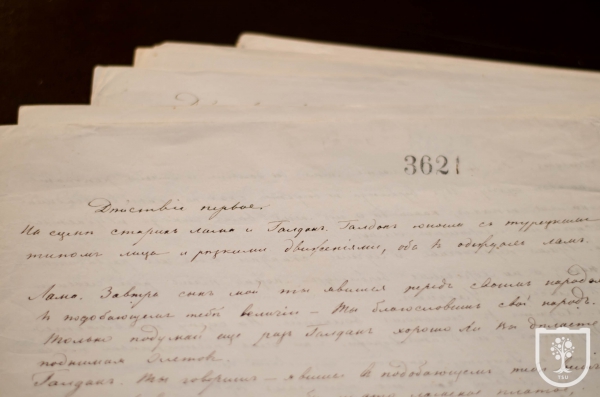 3621
Действіе первое.
На сцене старикъ лама и Галданъ. Галданъ юноша съ турецкимъ
типомъ лица и резкими движеніями, оба въ одеждахъ ламъ.
Лама. Завтра сынъ мой ты явишся передъ своимъ народомъ
въ подобающемъ тебѣ величіи – Ты благословишь свой народъ.
Только подумай еще разъ Галданъ хорошо ли ты делаешь
поднимая Элетовъ.
Галданъ. Ты говоришь – явишся въ подобающемъ тебѣ